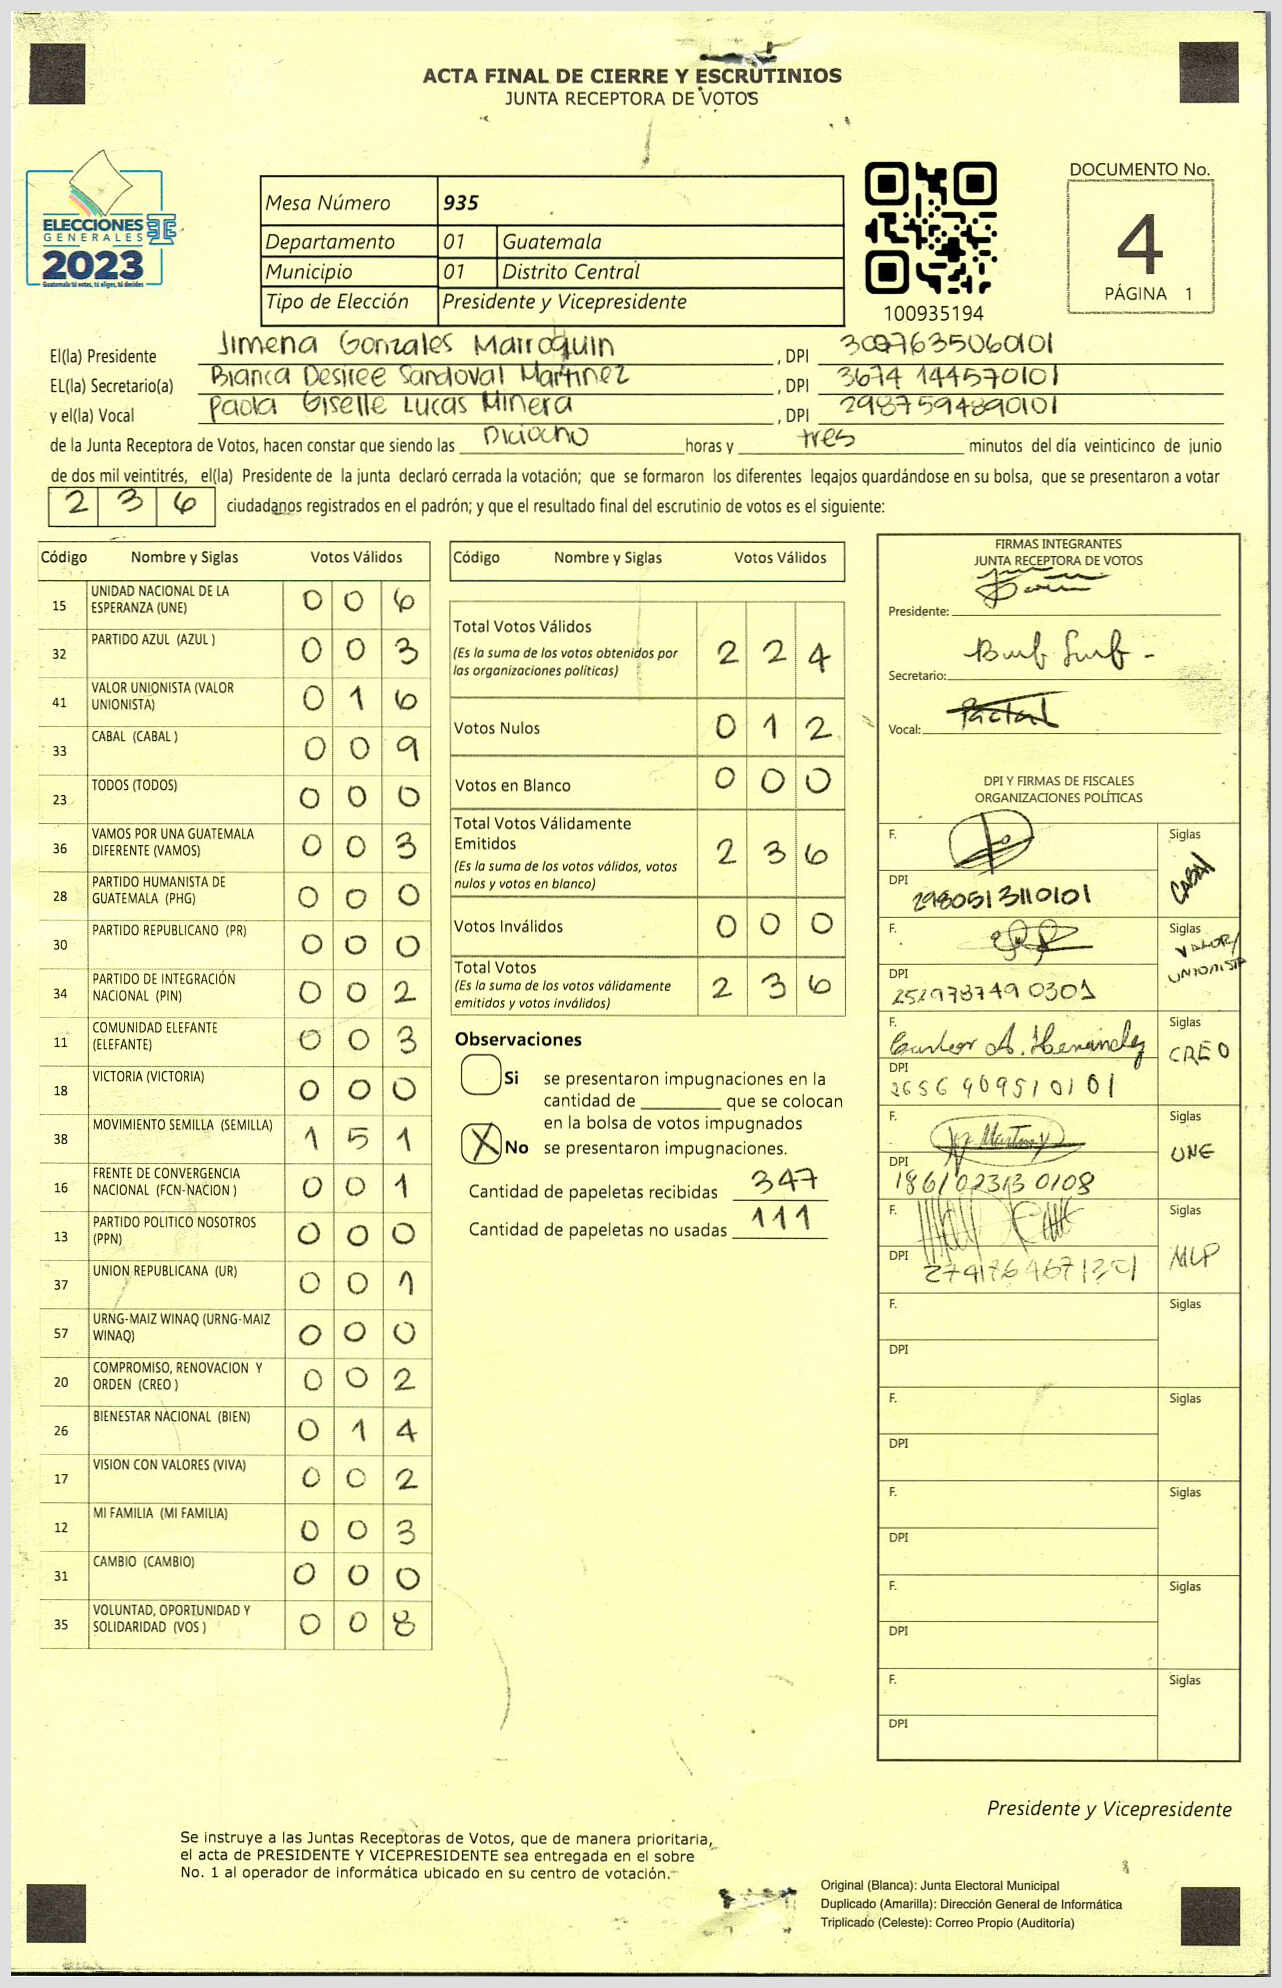 ACTA FINAL DE CIERRE Y ESCRUTINIOS
JUNTA RECEPTORA DE VOTOS
ELECCIONES
GENERALES
2023
Guatemala tú votas, tú eliges, tú decides
Mesa Número 935
Departamento 01 Guatemala
Municipio 01 Distrito Central
Tipo de Elección Presidente y Vicepresidente
100935194
DOCUMENTO No.
4
PÁGINA 1
El(la) Presidente Jimena Gonzales Marroquin, DPI 3097635060101
EL(la) Secretario(a) Bianca Desiree Sandoval Martinez, DPI 3674 144570101
y el(la) Vocal Paola Giselle Lucas Minera, DPI 2987594890101
de la Junta Receptora de Votos, hacen constar que siendo las Diciocho horas y tres minutos del día veinticinco de junio
de dos mil veintitrés, el(la) Presidente de la junta declaró cerrada la votación; que se formaron los diferentes legajos guardándose en su bolsa, que se presentaron a votar
236 ciudadanos registrados en el padrón; y que el resultado final del escrutinio de votos es el siguiente:
Código Nombre y Siglas Votos Válidos
15 UNIDAD NACIONAL DE LA
ESPERANZA (UNE) 0 0 6
32 PARTIDO AZUL (AZUL ) 0 0 3
41 VALOR UNIONISTA (VALOR
UNIONISTA) 0 1 6
33 CABAL (CABAL ) 0 0 9
23 TODOS (TODOS) 0 0 0
36 VAMOS POR UNA GUATEMALA
DIFERENTE (VAMOS) 0 0 3
28 PARTIDO HUMANISTA DE
GUATEMALA (PHG) 0 0 0
30 PARTIDO REPUBLICANO (PR) 0 0 0
34 PARTIDO DE INTEGRACIÓN
NACIONAL (PIN) 0 0 2
11 COMUNIDAD ELEFANTE
(ELEFANTE) 0 0 3
18 VICTORIA (VICTORIA) 0 0 0
38 MOVIMIENTO SEMILLA (SEMILLA) 1 5 1
16 FRENTE DE CONVERGENCIA
NACIONAL (FCN-NACION ) 0 0 1
13 PARTIDO POLITICO NOSOTROS
(PPN) 0 0 0
37 UNION REPUBLICANA (UR) 0 0 1
57 URNG-MAIZ WINAQ (URNG-MAIZ
WINAQ) 0 0 0
20 COMPROMISO, RENOVACION Y
ORDEN (CREO ) 0 0 2
26 BIENESTAR NACIONAL (BIEN) 0 1 4
17 VISION CON VALORES (VIVA) 0 0 2
12 MI FAMILIA (MI FAMILIA) 0 0 3
31 CAMBIO (CAMBIO) 0 0 0
35 VOLUNTAD, OPORTUNIDAD Y
SOLIDARIDAD (VOS ) 0 0 8
Código Nombre y Siglas Votos Válidos
Total Votos Válidos
(Es la suma de los votos obtenidos por
las organizaciones políticas) 2 2 4
Votos Nulos 0 1 2
Votos en Blanco 0 0 0
Total Votos Válidamente
Emitidos
(Es la suma de los votos válidos, votos
nulos y votos en blanco) 2 3 6
Votos Inválidos 0 0 0
Total Votos
(Es la suma de los votos válidamente
emitidos y votos inválidos) 2 3 6
Observaciones
Si se presentaron impugnaciones en la
cantidad de ________ que se colocan
en la bolsa de votos impugnados
X No se presentaron impugnaciones.
Cantidad de papeletas recibidas 347
Cantidad de papeletas no usadas 111
FIRMAS INTEGRANTES
JUNTA RECEPTORA DE VOTOS
Presidente:
Secretario:
Vocal:
DPI Y FIRMAS DE FISCALES
ORGANIZACIONES POLÍTICAS
F. Siglas CABAL
DPI 2980513110101
F. Siglas VALOR/
UNIONISTA
DPI 2529787490301
F. Carlos A. Hernández Siglas CREO
DPI 2656909510101
F. Siglas UNE
DPI 1861023130108
F. Siglas MLP
DPI
F. Siglas
DPI
F. Siglas
DPI
F. Siglas
DPI
F. Siglas
DPI
F. Siglas
DPI
Presidente y Vicepresidente
Se instruye a las Juntas Receptoras de Votos, que de manera prioritaria,
el acta de PRESIDENTE Y VICEPRESIDENTE sea entregada en el sobre
No. 1 al operador de informática ubicado en su centro de votación.
Original (Blanca): Junta Electoral Municipal
Duplicado (Amarilla): Dirección General de Informática
Triplicado (Celeste): Correo Propio (Auditoría)